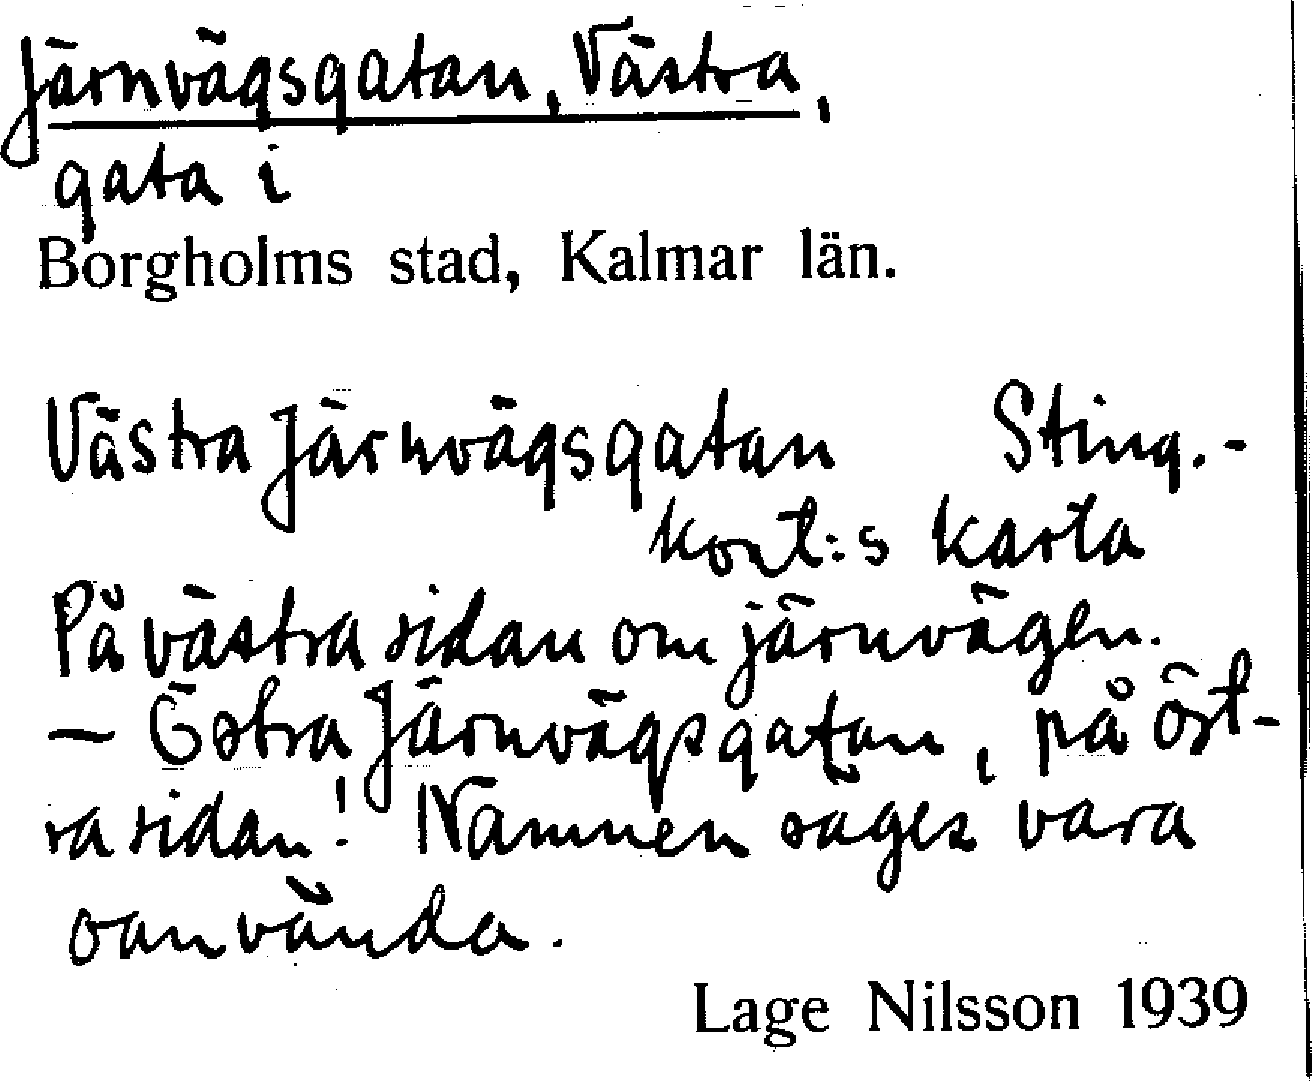 Järnvägsgatan, Västra,
gata i
Borgholms stad, Kalmar län.
Västra Järnvägsgatan Sting.-
kort:s karta
På västra sidan om järnvägen.
— Östra Järnvägsgatan, på öst-
ra sidan! Namnen säges vara
oanvända.
Lage Nilsson 1939